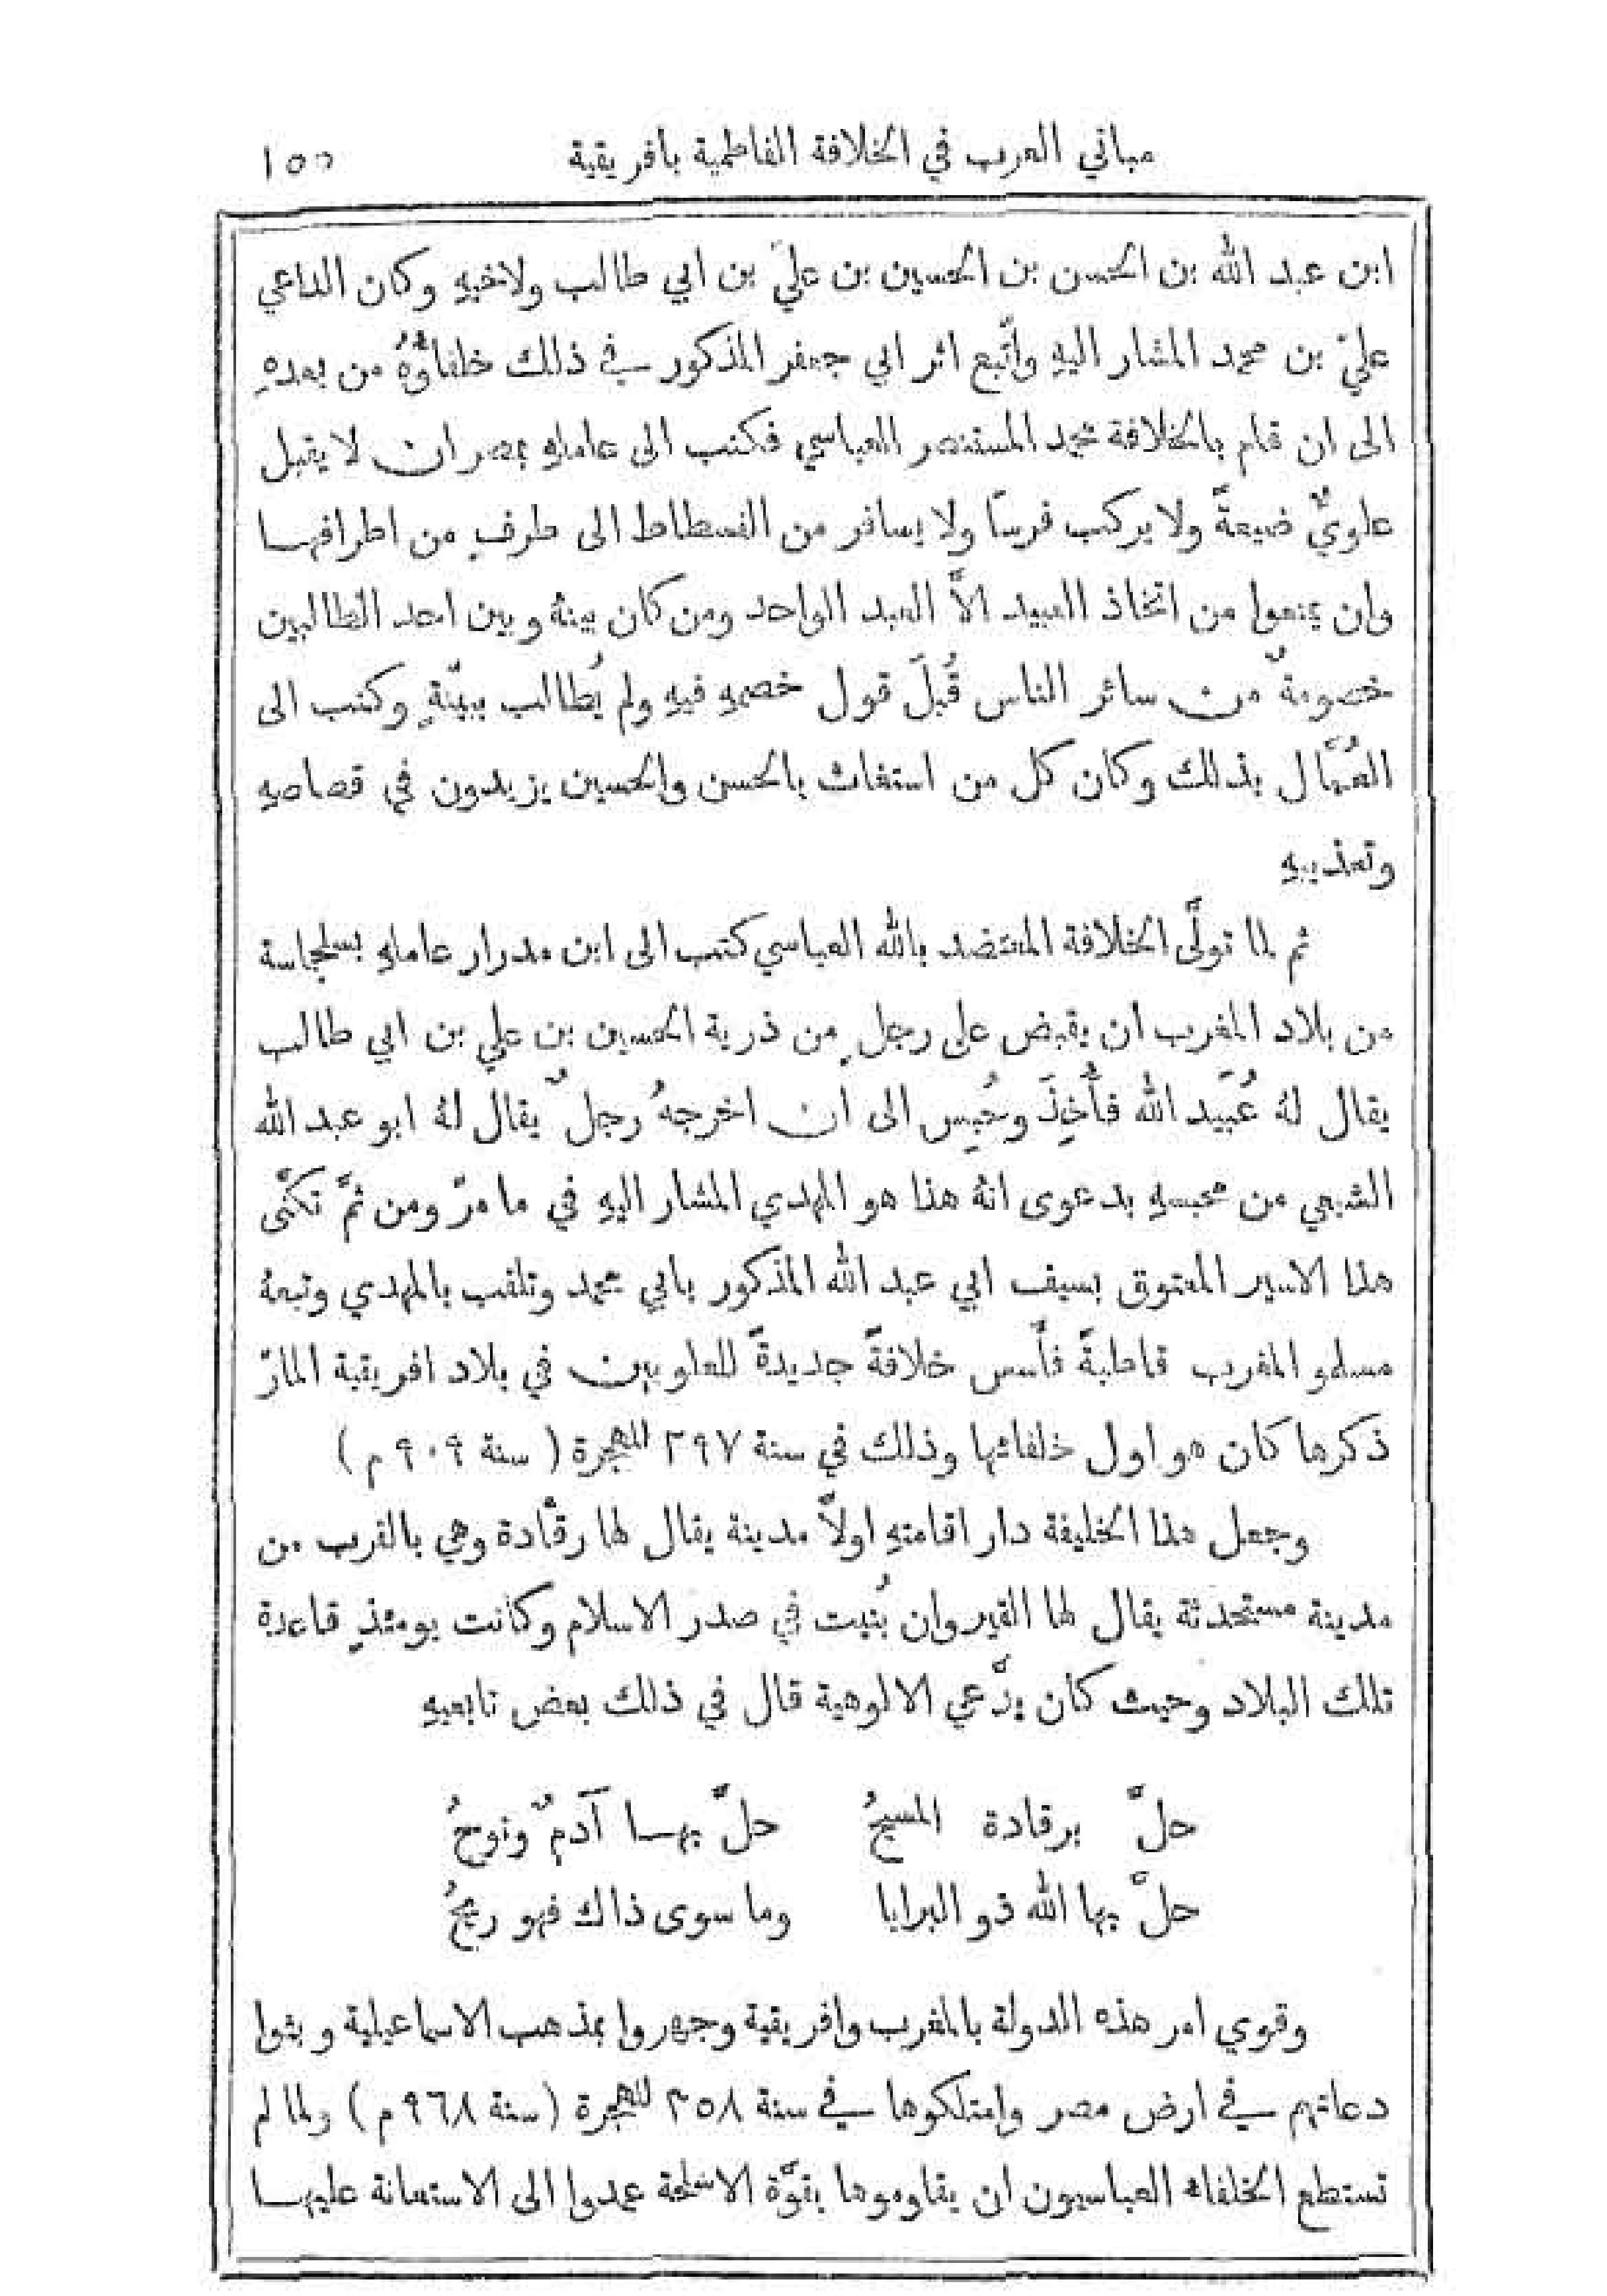 مباني العرب في الخلافة الفاطمية بافريقية ١٥٥
ابن عبد الله بن الحسن بن الحسين بن عليّ بن ابي طالب ولاخيهِ وكان الداعي
عليّ بن محمد المشار اليهِ واتّبع اثر ابي جعفر المذكور في ذلك خلفاؤُهُ من بعدهِ
الى ان قام بالخلافة محمد المستنصر العباسي فكتب الى عاملهِ بمصر ان لا يقبل
علويٌّ ضيعةً ولا يركب فرسًا ولا يسافر من الفسطاط الى طرفٍ من اطرافها
وان يمنعوا من اتخاذ العبيد الاَّ العبد الواحد ومن كان بينهُ وبين احد الطالبين
خصومةٌ من سائر الناس قُبِلَ قول خصمهِ فيهِ ولم يُطالب ببيّنةٍ وكتب الى
العُمَّال بذلك وكان كل من استغاث بالحسن والحسين يزيدون في قصاصهِ
وتعذيبهِ
ثم لما تولَّى الخلافة المعتضد بالله العباسي كتب الى ابن مدرار عاملهِ بسلجماسة
من بلاد المغرب ان يقبض على رجلٍ من ذرية الحسين بن علي بن ابي طالب
يقال لهُ عُبَيد الله فأُخِذَ وحُبِس الى ان اخرجهُ رجلٌ يقال لهُ ابو عبد الله
الشيعي من محبسهِ بدعوى انهُ هذا هو المهدي المشار اليهِ في ما مرّ ومن ثمَّ تكنَّى
هذا الاسير المعتوق بسيف ابي عبد الله المذكور بابي محمد وتلقب بالمهدي وتبعهُ
مسلمو المغرب قاطبةً فأسس خلافةً جديدةً للعلويين في بلاد افريقية المارّ
ذكرها كان هو اول خلفائها وذلك في سنة ٢٩٧ للهجرة (سنة ٩٠٩ م)
وجعل هذا الخليفة دار اقامتهِ اولاً مدينة يقال لها رقَّادة وهي بالقرب من
مدينة مستحدثة يقال لها القيروان بُنيت في صدر الاسلام وكانت يومئذٍ قاعدة
تلك البلاد وحيث كان يدَّعي الالوهية قال في ذلك بعض تابعيهِ
حلَّ برقادة المسيحُ حلَّ بها آدمٌ ونوحُ
حلَّ بها الله ذو البرايا وما سوى ذاك فهو ريحُ
وقوي امر هذه الدولة بالمغرب وافريقية وجهروا بمذهب الاسماعيلية وبثوا
دعاتهم في ارض مصر وامتلكوها في سنة ٣٥٨ للهجرة (سنة ٩٦٨ م) ولما لم
تستطع الخلفاء العباسيون ان يقاوموها بقوَّة الاسلحة عمدوا الى الاستعانة عليها